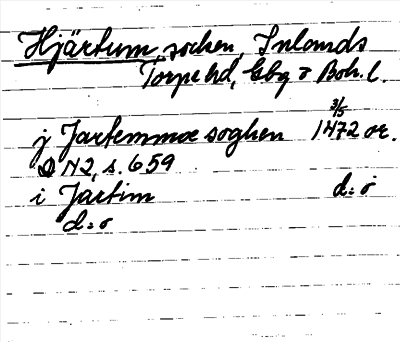 Hjärtum, socken, Inlands
Torpe hd, Gbg o Boh. l.
3/5
j Jartemmoe soghen 1472 or.
DN2, s. 659
i Jartim d:o
d:o